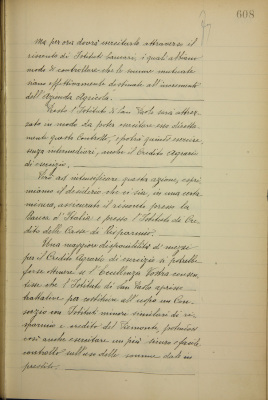 608
ma per ora dovrà esercitarlo attraverso il
risconto di Istituti bancari, i quali abbiano
modo di controllare che le somme mutuate
siano effettivamente destinate all'incremento
dell'Azienda Agricola.
Questo l'Istituto di San Paolo sarà attrez-
zato in modo da poter esercitare esso diretta-
mente questo Controllo, potrà quindi esercire,
senza intermediari, anche il Credito Agrario
di esercizio.
Ma ad intensificare questa azione, espri-
miamo il desiderio che ci sia, in una certa
misura, assicurato il risconto presso la
Banca d'Italia e presso l'Istituto di Cre-
dito delle Casse di Risparmio.
Una maggiore disponibilità di mezzi
per il Credito Agrario di esercizio si potrebbe
forse ottenere se l'Eccellenza Vostra consen-
tisse che l'Istituto di San Paolo aprisse
trattative per costituire all'uopo un Con-
sorzio con Istituti minori similari di ri-
sparmio e credito del Piemonte, potendosi
così anche esercitare un più sicuro e facile
controllo sull'uso delle somme date in
prestito.